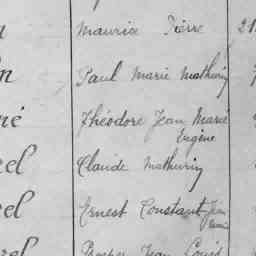 Maurice Pierre 21
Paul Marie Mathurin
né Théodore Jean Marie
Eugène
rel Claude Mathurin
rel Ernest Constant Jean
rel Prosper Jean Louis